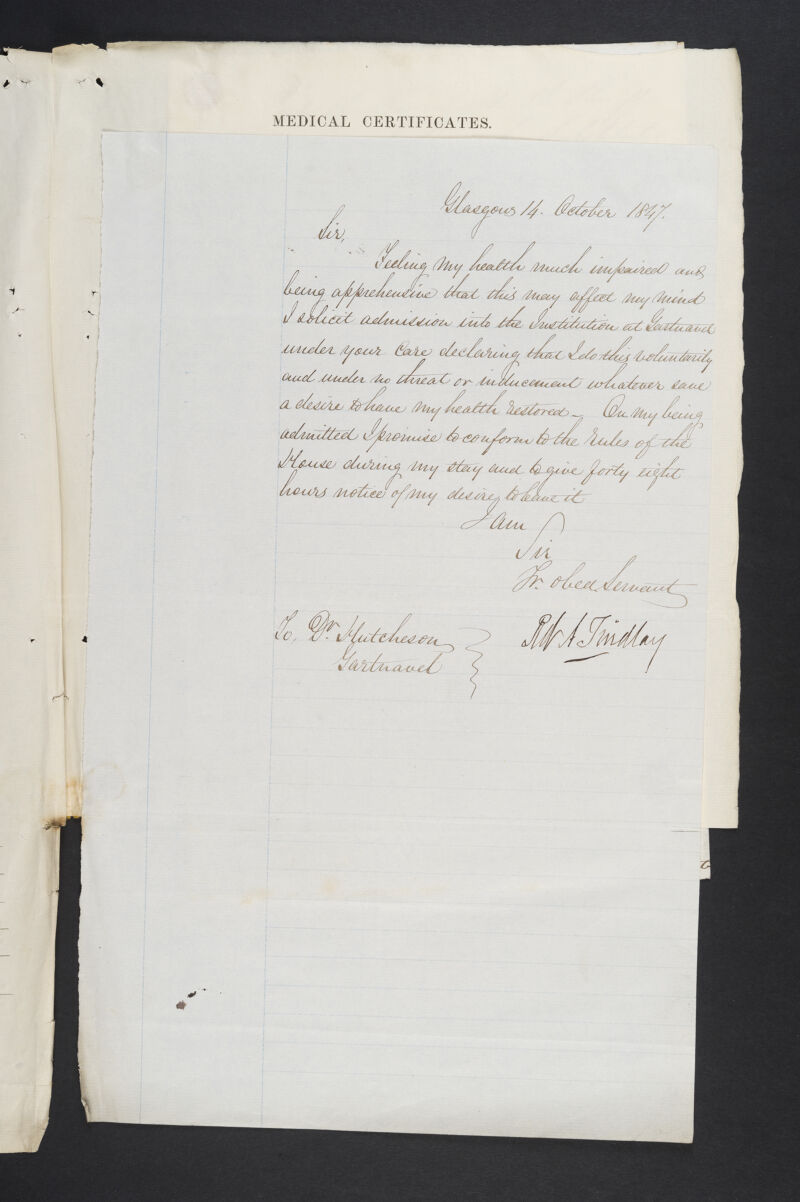 MEDICAL CERTIFICATES.
Glasgow 14. October 1847.
Sir,
Feeling my health much impaired and
being apprehensive that this may affect my mind
I solicit admission into the Institution at Gartnavel
under your care declaring that I do this voluntarily
and under no threat or inducement whatever save
a desire to have my health restored – On my being
admitted I promise to conform to the rules of the
House during my stay and to give forty eight
hours notice of my desire to leave it
I am
Sir
Yr. obed. Servant
R W A Findlay
To, Dr. Hutcheson
Gartnavel